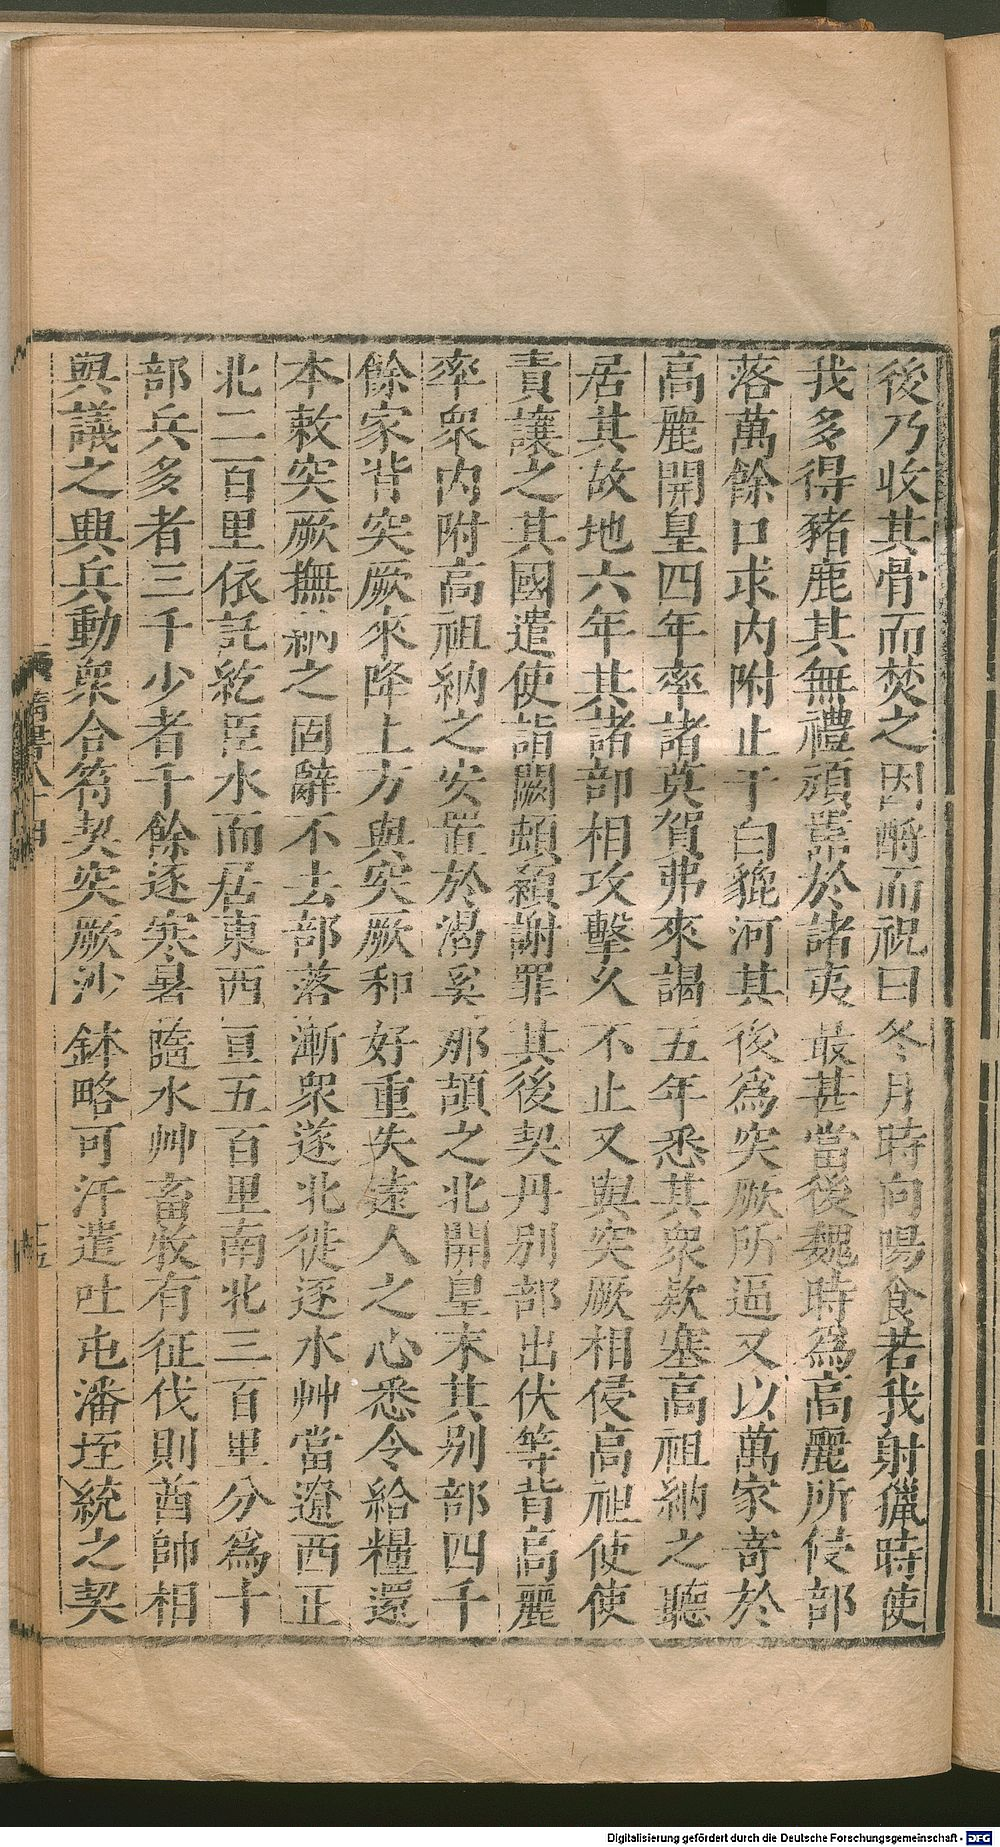 後乃收其骨而焚之因酹而祝曰冬月時向陽食若我射獵時使
我多得豬鹿其無禮頑嚚於諸夷最甚當後魏時為高麗所侵部
落萬餘口求內附止于白貔河其後爲突厥所逼又以萬家寄於
高麗開皇四年率諸莫賀弗來謁五年悉其衆欵塞高祖納之聽
居其故地六年其諸部相攻擊久不止又與突厥相侵高祖使使
責讓之其國遣使詣闕頓顙謝罪其後契丹別部出伏等背高麗
率衆內附高祖納之安置於渴奚那頡之北開皇末其別部四千
餘家背突厥來降上方與突厥和好重失遠人之心悉令給糧還
本敕突厥撫納之固辭不去部落漸衆遂北徙逐水艸當遼西正
北二百里依託紇臣水而居東西亘五百里南北三百里分爲十
部兵多者三千少者千餘逐寒暑隨水艸畜牧有征伐則酋帥相
與議之興兵動衆合符契突厥沙鉢略可汗遣吐屯潘垤統之契
隋書八十四
十五
Digitalisierung gefördert durch die Deutsche Forschungsgemeinschaft - DFG